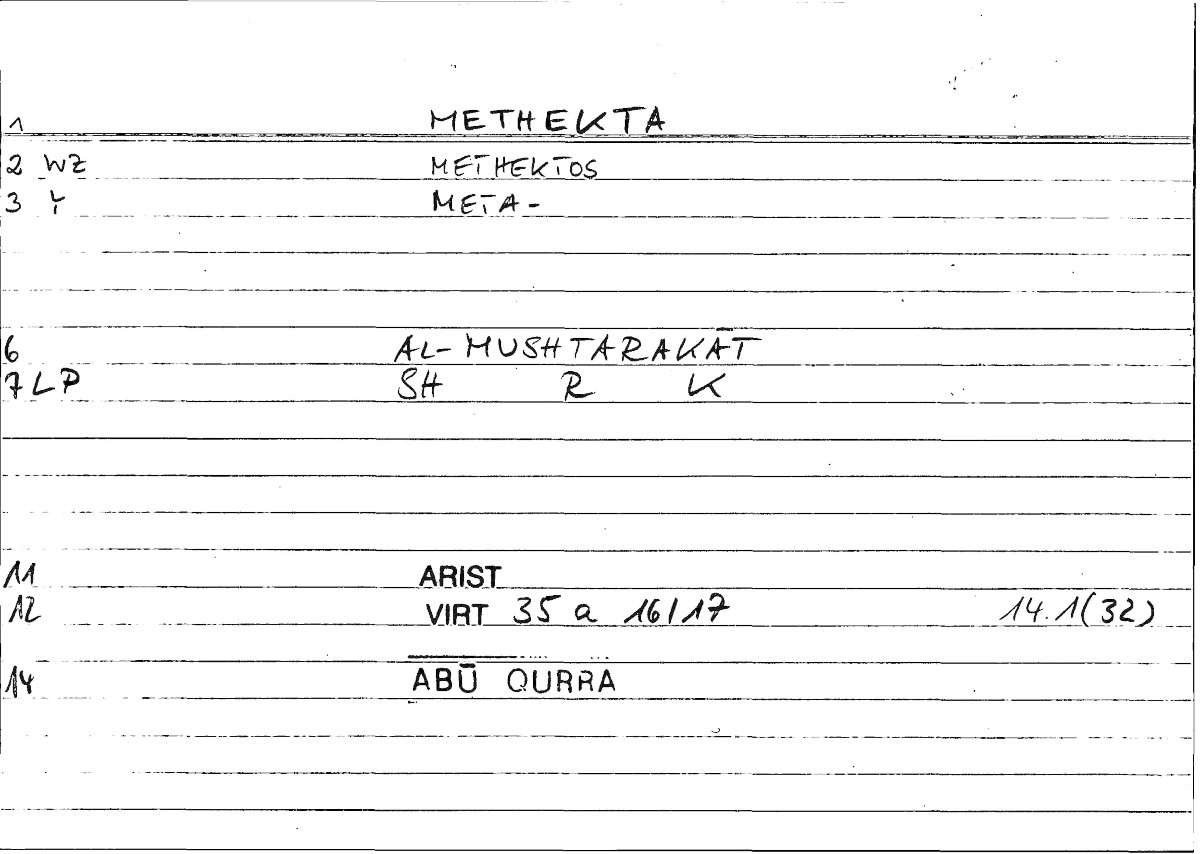 1 METHEKTA
2 WZ METHEKTOS
3 Y META-
6 AL-MUSHTARAKĀT
7 LP SH R K
11 ARIST
12 VIRT 35 a 16/17 14.1(32)
14 ABŪ QURRA